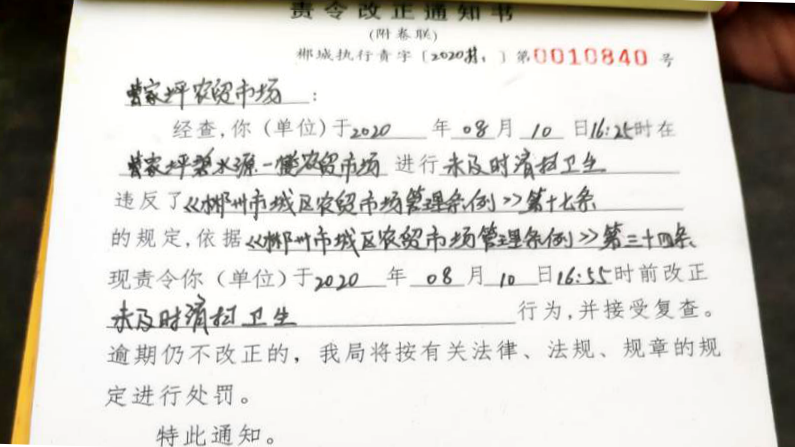 责令改正通知书
(附卷联)
郴城执行责字〔2020〕第0010840号
曹家坪农贸市场:
经查,你(单位)于2020年08月10日16:25时在
曹家坪碧水源一楼农贸市场进行未及时清扫卫生
违反了《郴州市城区农贸市场管理条例》第十七条
的规定,依据《郴州市城区农贸市场管理条例》第三十四条
现责令你(单位)于2020年08月10日16:55时前改正
未及时清扫卫生行为,并接受复查。
逾期仍不改正的,我局将按有关法律、法规、规章的规
定进行处罚。
特此通知。